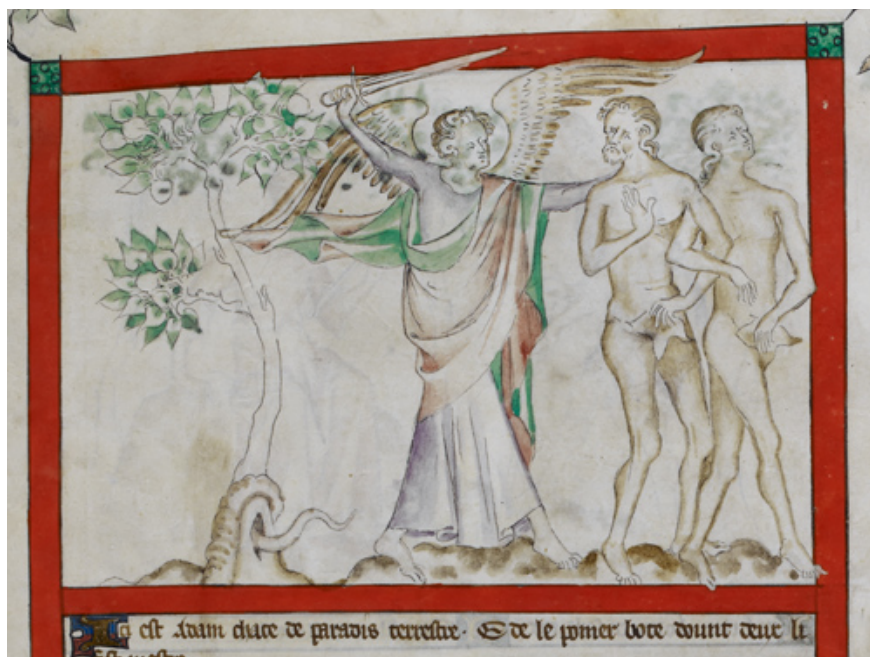 Ici est Adam chace de paradis terrestre. E de le pomer bote dount deue li